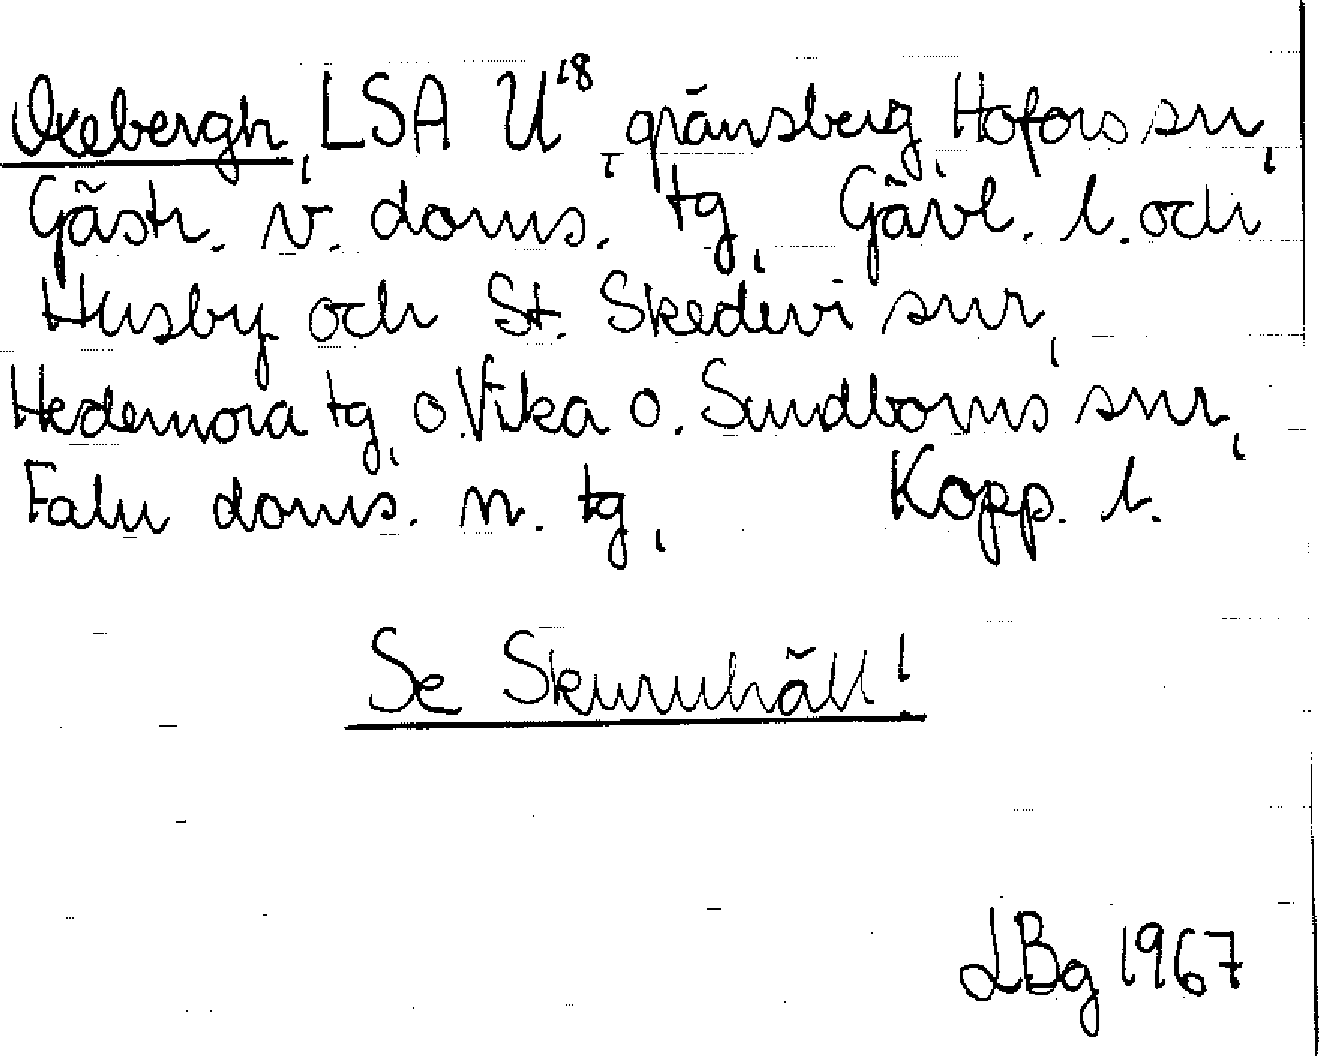 Oxebergh, LSA U¹⁸, gränsberg, Hofors sn,
Gästr. v. doms. tg, Gävl. l. och
Husby och St. Skedvi snr,
Hedemora tg, o. Vika o. Sundborns snr,
Falu doms. n. tg, Kopp. l.
Se Skuruhäll!
LBg 1967